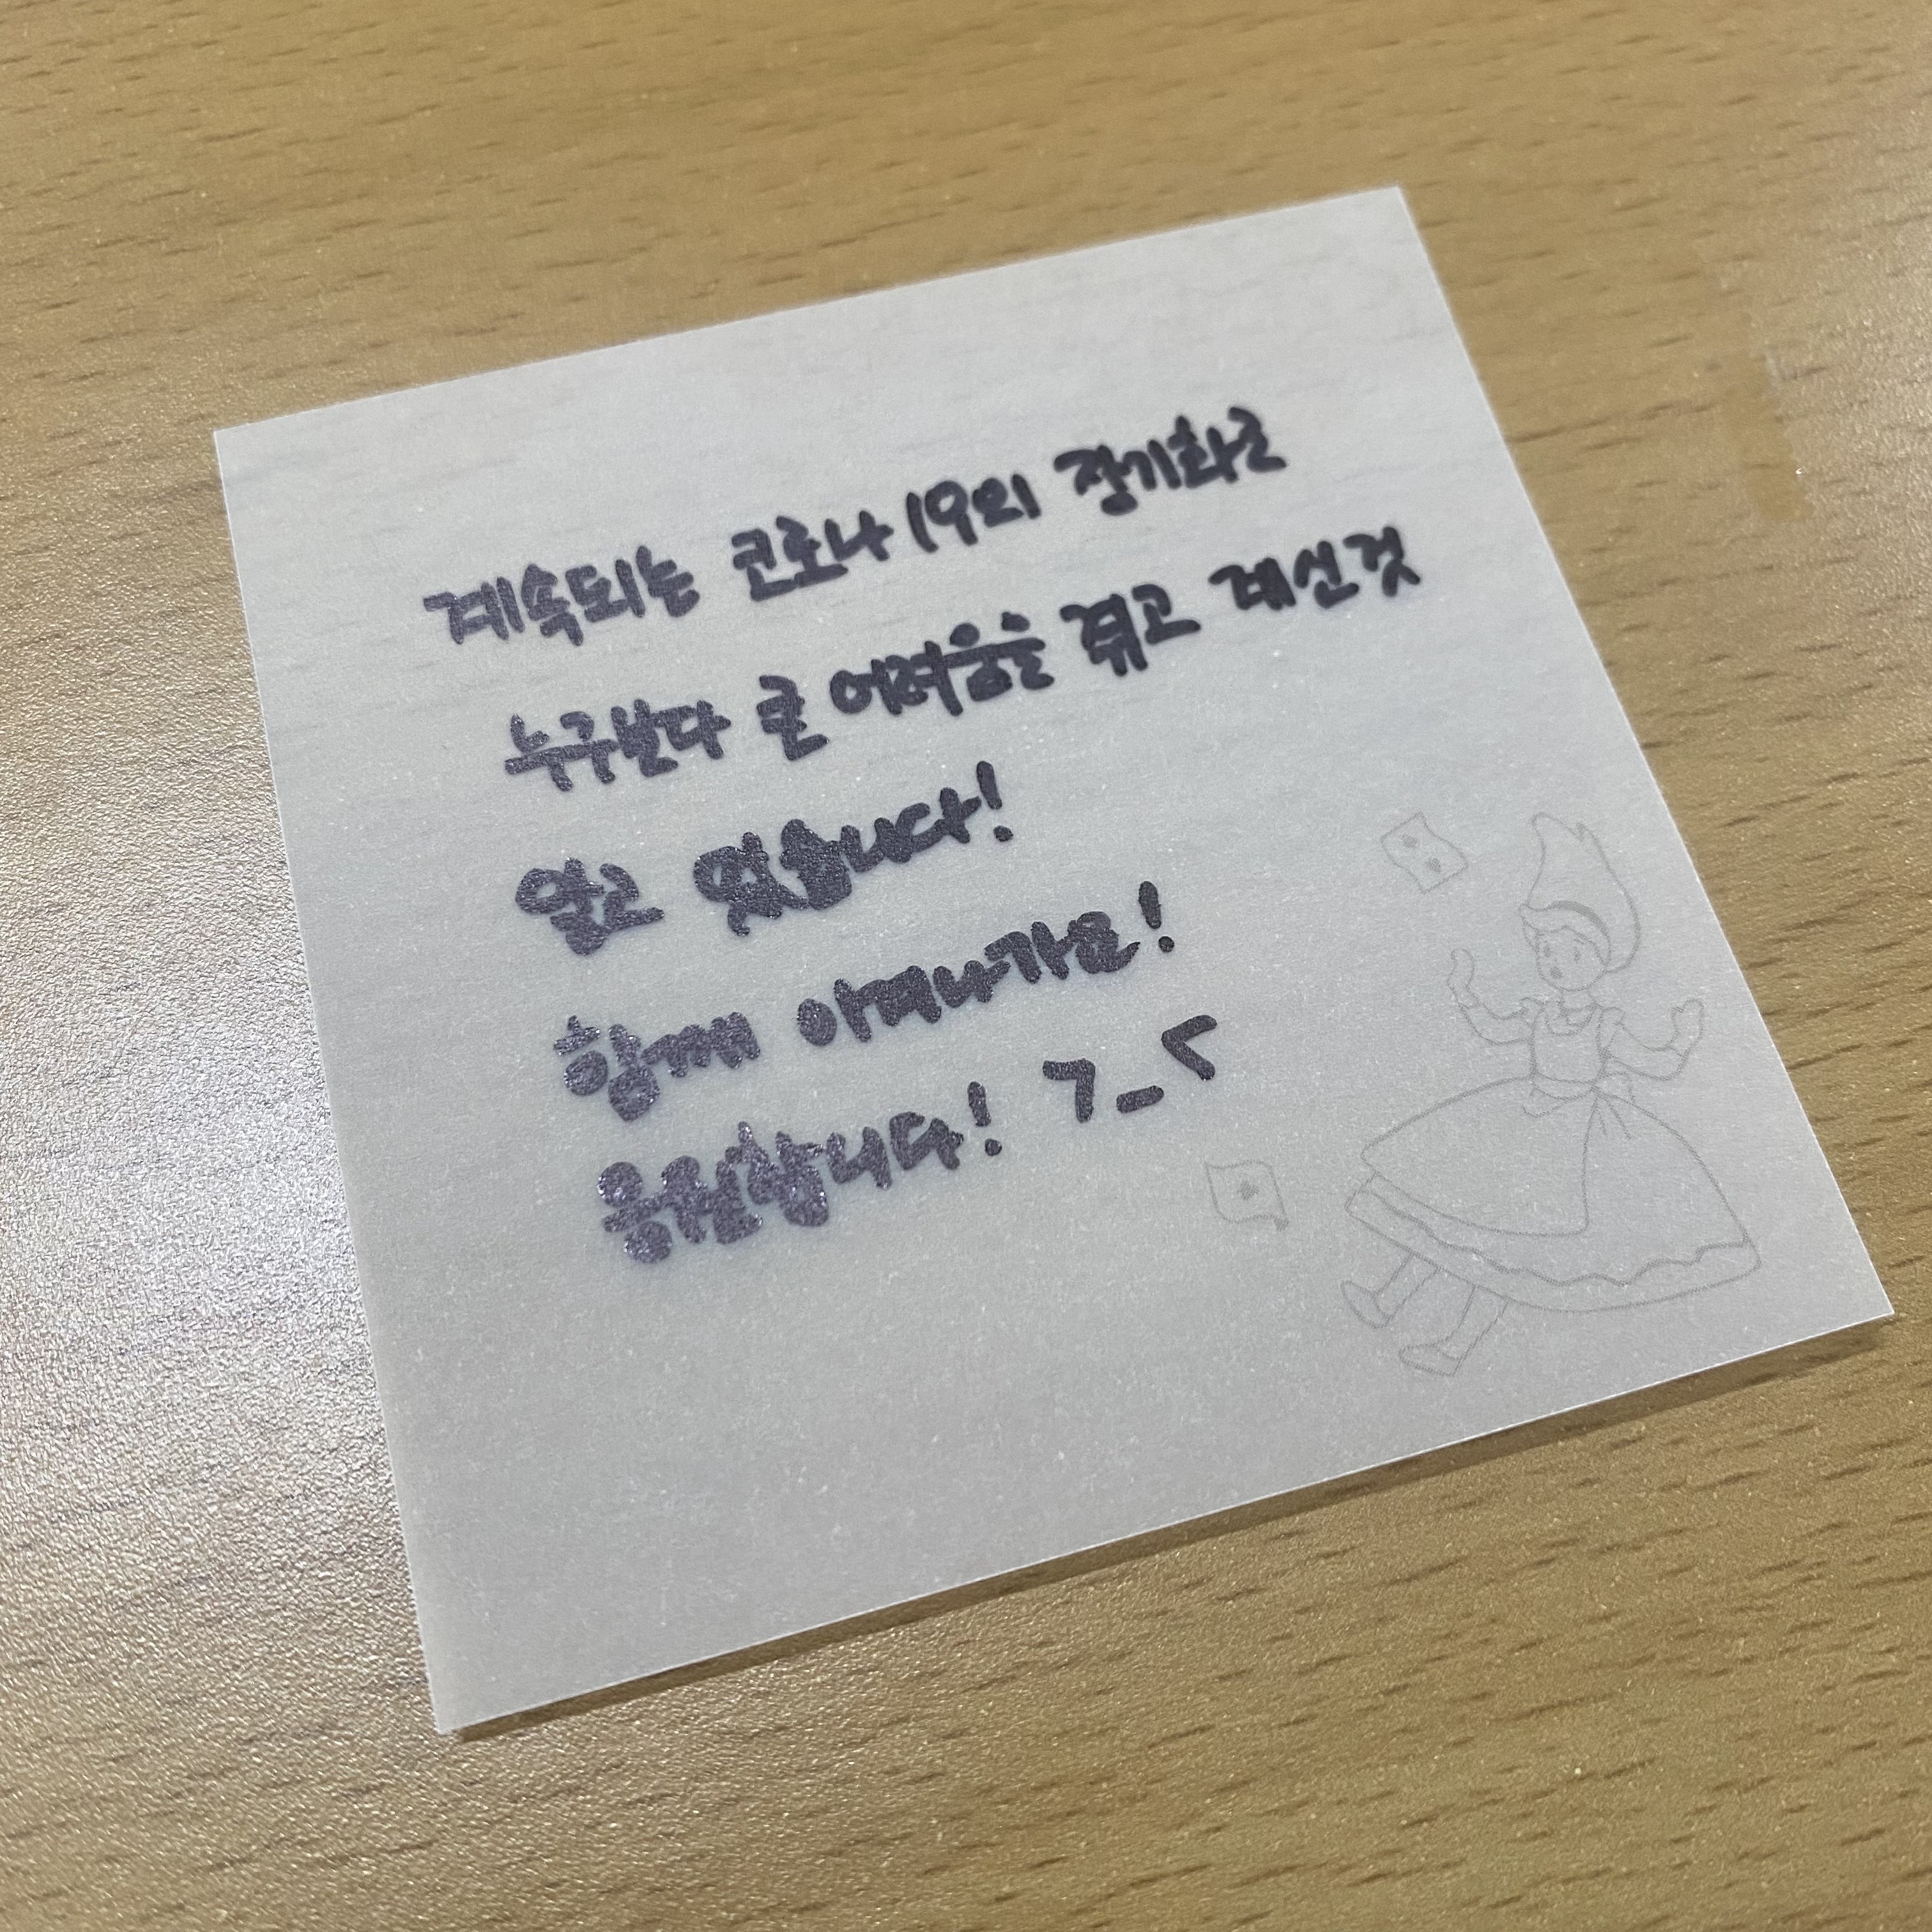 계속되는 코로나19의 장기화로
누구보다 큰 어려움을 겪고 계신것
알고 있습니다!
함께 이겨나가요!
응원합니다! ㄱ_<